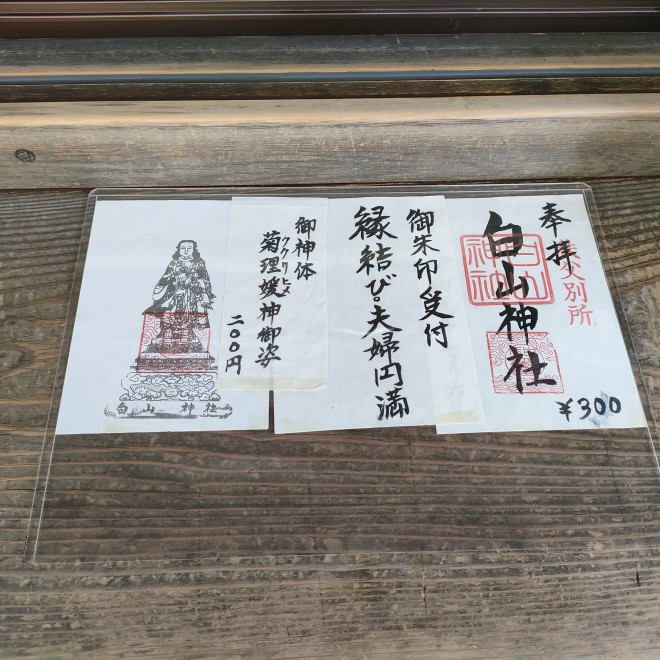 奉拝
秩父別所
白山神社
白山
神社
¥300
御朱印受付
縁結び・夫婦円満
御神体
菊理媛神御姿
ククリヒメ
二〇〇円
白山神社